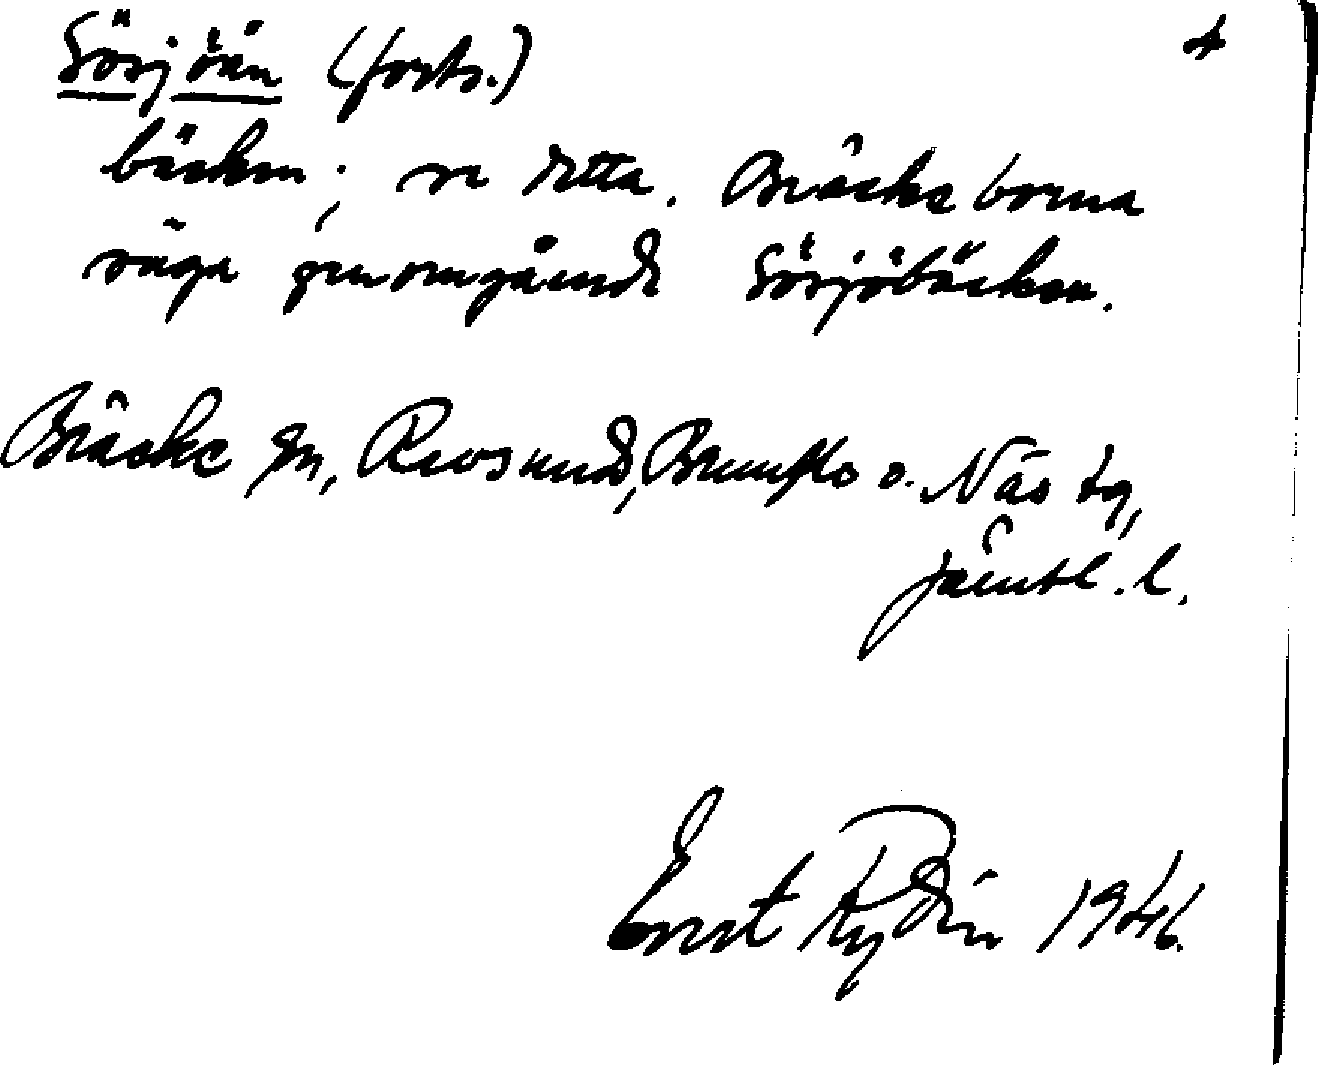 Sörjöån (forts.) 4
bäcken; se detta. Bräckeborna
säga genomgående Sörjöbäcken.
Bräcke sn, Revsund, Brunflo o. Näs tg,
Jämtl. l.
Ernst Rydin 1946.